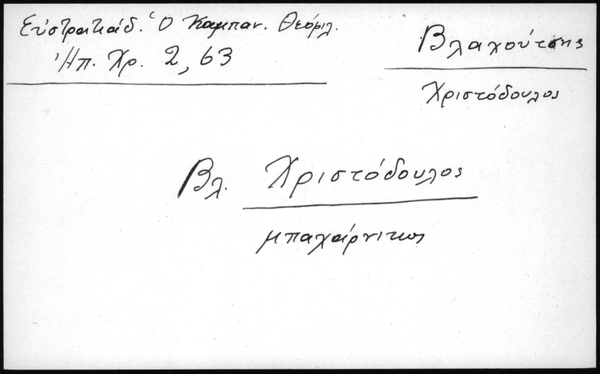 Εὐστρατιάδ. Ὁ Καμπαν. Θεόφιλ.
Ἠπ. Χρ. 2, 63
Βλαχούτσης
Χριστόδουλος
Βλ. Χριστόδουλος